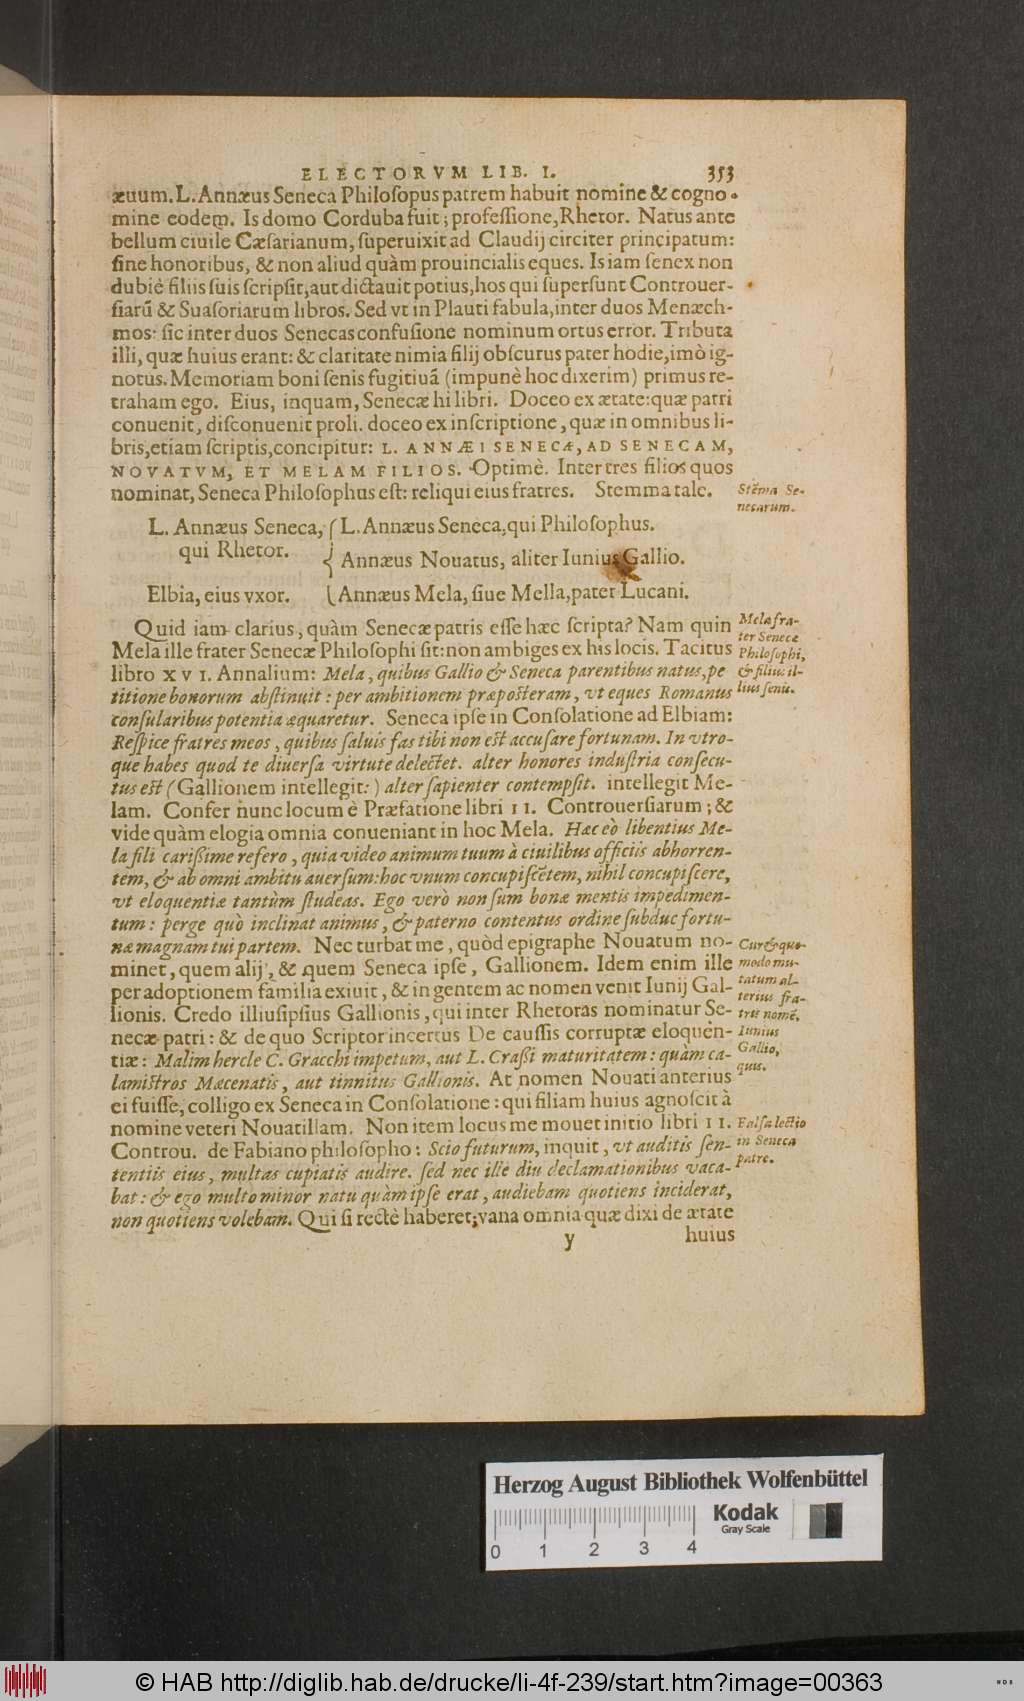 ELECTORVM LIB. I. 353
æuum. L. Annæus Seneca Philosopus patrem habuit nomine & cogno-
mine eodem. Is domo Corduba fuit; professione, Rhetor. Natus ante
bellum ciuile Cæsarianum, superuixit ad Claudij circiter principatum:
sine honoribus, & non aliud quàm prouincialis eques. Is iam senex non
dubiè filiis suis scripsit, aut dictauit potius, hos qui supersunt Controuer-
siarũ & Suasoriarum libros. Sed vt in Plauti fabula, inter duos Menæch-
mos: sic inter duos Senecas confusione nominum ortus error. Tributa
illi, quæ huius erant: & claritate nimia filij obscurus pater hodie, imò ig-
notus. Memoriam boni senis fugitiuã (impunè hoc dixerim) primus re-
traham ego. Eius, inquam, Senecæ hi libri. Doceo ex ætate: quæ patri
conuenit, disconuenit proli. doceo ex inscriptione, quæ in omnibus li-
bris, etiam scriptis, concipitur: L. ANNÆI SENECÆ, AD SENECAM,
NOVATVM, ET MELAM FILIOS. Optimè. Inter tres filios quos
nominat, Seneca Philosophus est: reliqui eius fratres. Stemma tale.
Stẽma Se-
necarum.
L. Annæus Seneca, { L. Annæus Seneca, qui Philosophus.
qui Rhetor.
Annæus Nouatus, aliter Iunius Gallio.
Elbia, eius vxor. Annæus Mela, siue Mella, pater Lucani.
Quid iam clarius, quàm Senecæ patris esse hæc scripta? Nam quin
Mela ille frater Senecæ Philosophi sit: non ambiges ex his locis. Tacitus
libro XVI. Annalium: Mela, quibus Gallio & Seneca parentibus natus, pe
titione honorum abstinuit: per ambitionem præposteram, vt eques Romanus
consularibus potentia æquaretur. Seneca ipse in Consolatione ad Elbiam:
Respice fratres meos, quibus saluis fas tibi non est accusare fortunam. In vtro-
que habes quod te diuersa virtute delectet. alter honores industria consecu-
tus est (Gallionem intellegit:) alter sapienter contempsit. intellegit Me-
lam. Confer nunc locum è Præfatione libri II. Controuersiarum; &
vide quàm elogia omnia conueniant in hoc Mela. Hæc eò libentius Me-
la fili carißime refero, quia video animum tuum à ciuilibus officiis abhorren-
tem, & ab omni ambitu auersum: hoc vnum concupiscẽtem, nihil concupiscere,
vt eloquentiæ tantùm studeas. Ego verò non sum bonæ mentis impedimen-
tum: perge quò inclinat animus, & paterno contentus ordine subduc fortu-
næ magnam tui partem. Nec turbat me, quòd epigraphe Nouatum no-
minet, quem alij, & quem Seneca ipse, Gallionem. Idem enim ille
per adoptionem familia exiuit, & in gentem ac nomen venit Iunij Gal-
lionis. Credo illiusipsius Gallionis, qui inter Rhetoras nominatur Se-
necæ patri: & de quo Scriptor incertus De caussis corruptæ eloquen-
tiæ: Malim hercle C. Gracchi impetum, aut L. Craßi maturitatem: quàm ca-
lamistros Mæcenatis, aut tinnitus Gallionis. At nomen Nouati anterius
ei fuisse, colligo ex Seneca in Consolatione: qui filiam huius agnoscit à
nomine veteri Nouatillam. Non item locus me mouet initio libri II.
Controu. de Fabiano philosopho: Scio futurum, inquit, vt auditis sen-
tentiis eius, multas cupiatis audire. sed nec ille diu declamationibus vaca-
bat: & ego multo minor natu quàm ipse erat, audiebam quotiens inciderat,
non quotiens volebam. Qui si rectè haberet; vana omnia quæ dixi de ætate
Mela fra-
ter Senecæ
Philosophi,
& filius il-
lius senis.
Cur & quo-
modo mu-
tatum al-
terius fra-
tris nomẽ,
Iunius
Gallio,
quis.
Falsa lectio
in Seneca
patre.
y huius
Herzog August Bibliothek Wolfenbüttel
Kodak
Gray Scale
0 1 2 3 4
© HAB http://diglib.hab.de/drucke/li-4f-239/start.htm?image=00363